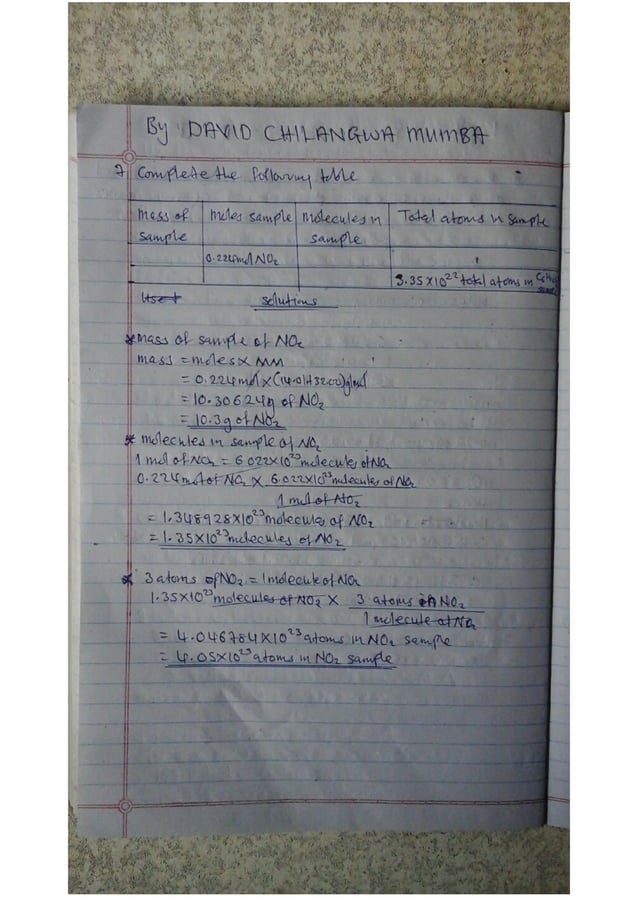 By DAVID CHILANGWA MUMBA
7 Complete the following table
mass of sample | moles sample | molecules in sample | Total atoms in sample
0.224mol NO₂
3.35X10²² total atoms in
Used solutions
* mass of sample of NO₂
mass = moles X MM
= 0.224mol X (14.01+32.00)g/mol
= 10.30624g of NO₂
= 10.3g of NO₂
* molecules in sample of NO₂
1 mol of NO₂ = 6.022X10²³ molecules of NO₂
0.224mol of NO₂ X 6.022X10²³ molecules of NO₂
1 mol of NO₂
= 1.348928X10²³ molecules of NO₂
= 1.35X10²³ molecules of NO₂
* 3 atoms of NO₂ = 1 molecule of NO₂
1.35X10²³ molecules of NO₂ X 3 atoms in NO₂
1 molecule of NO₂
= 4.046784X10²³ atoms in NO₂ sample
= 4.05X10²³ atoms in NO₂ sample